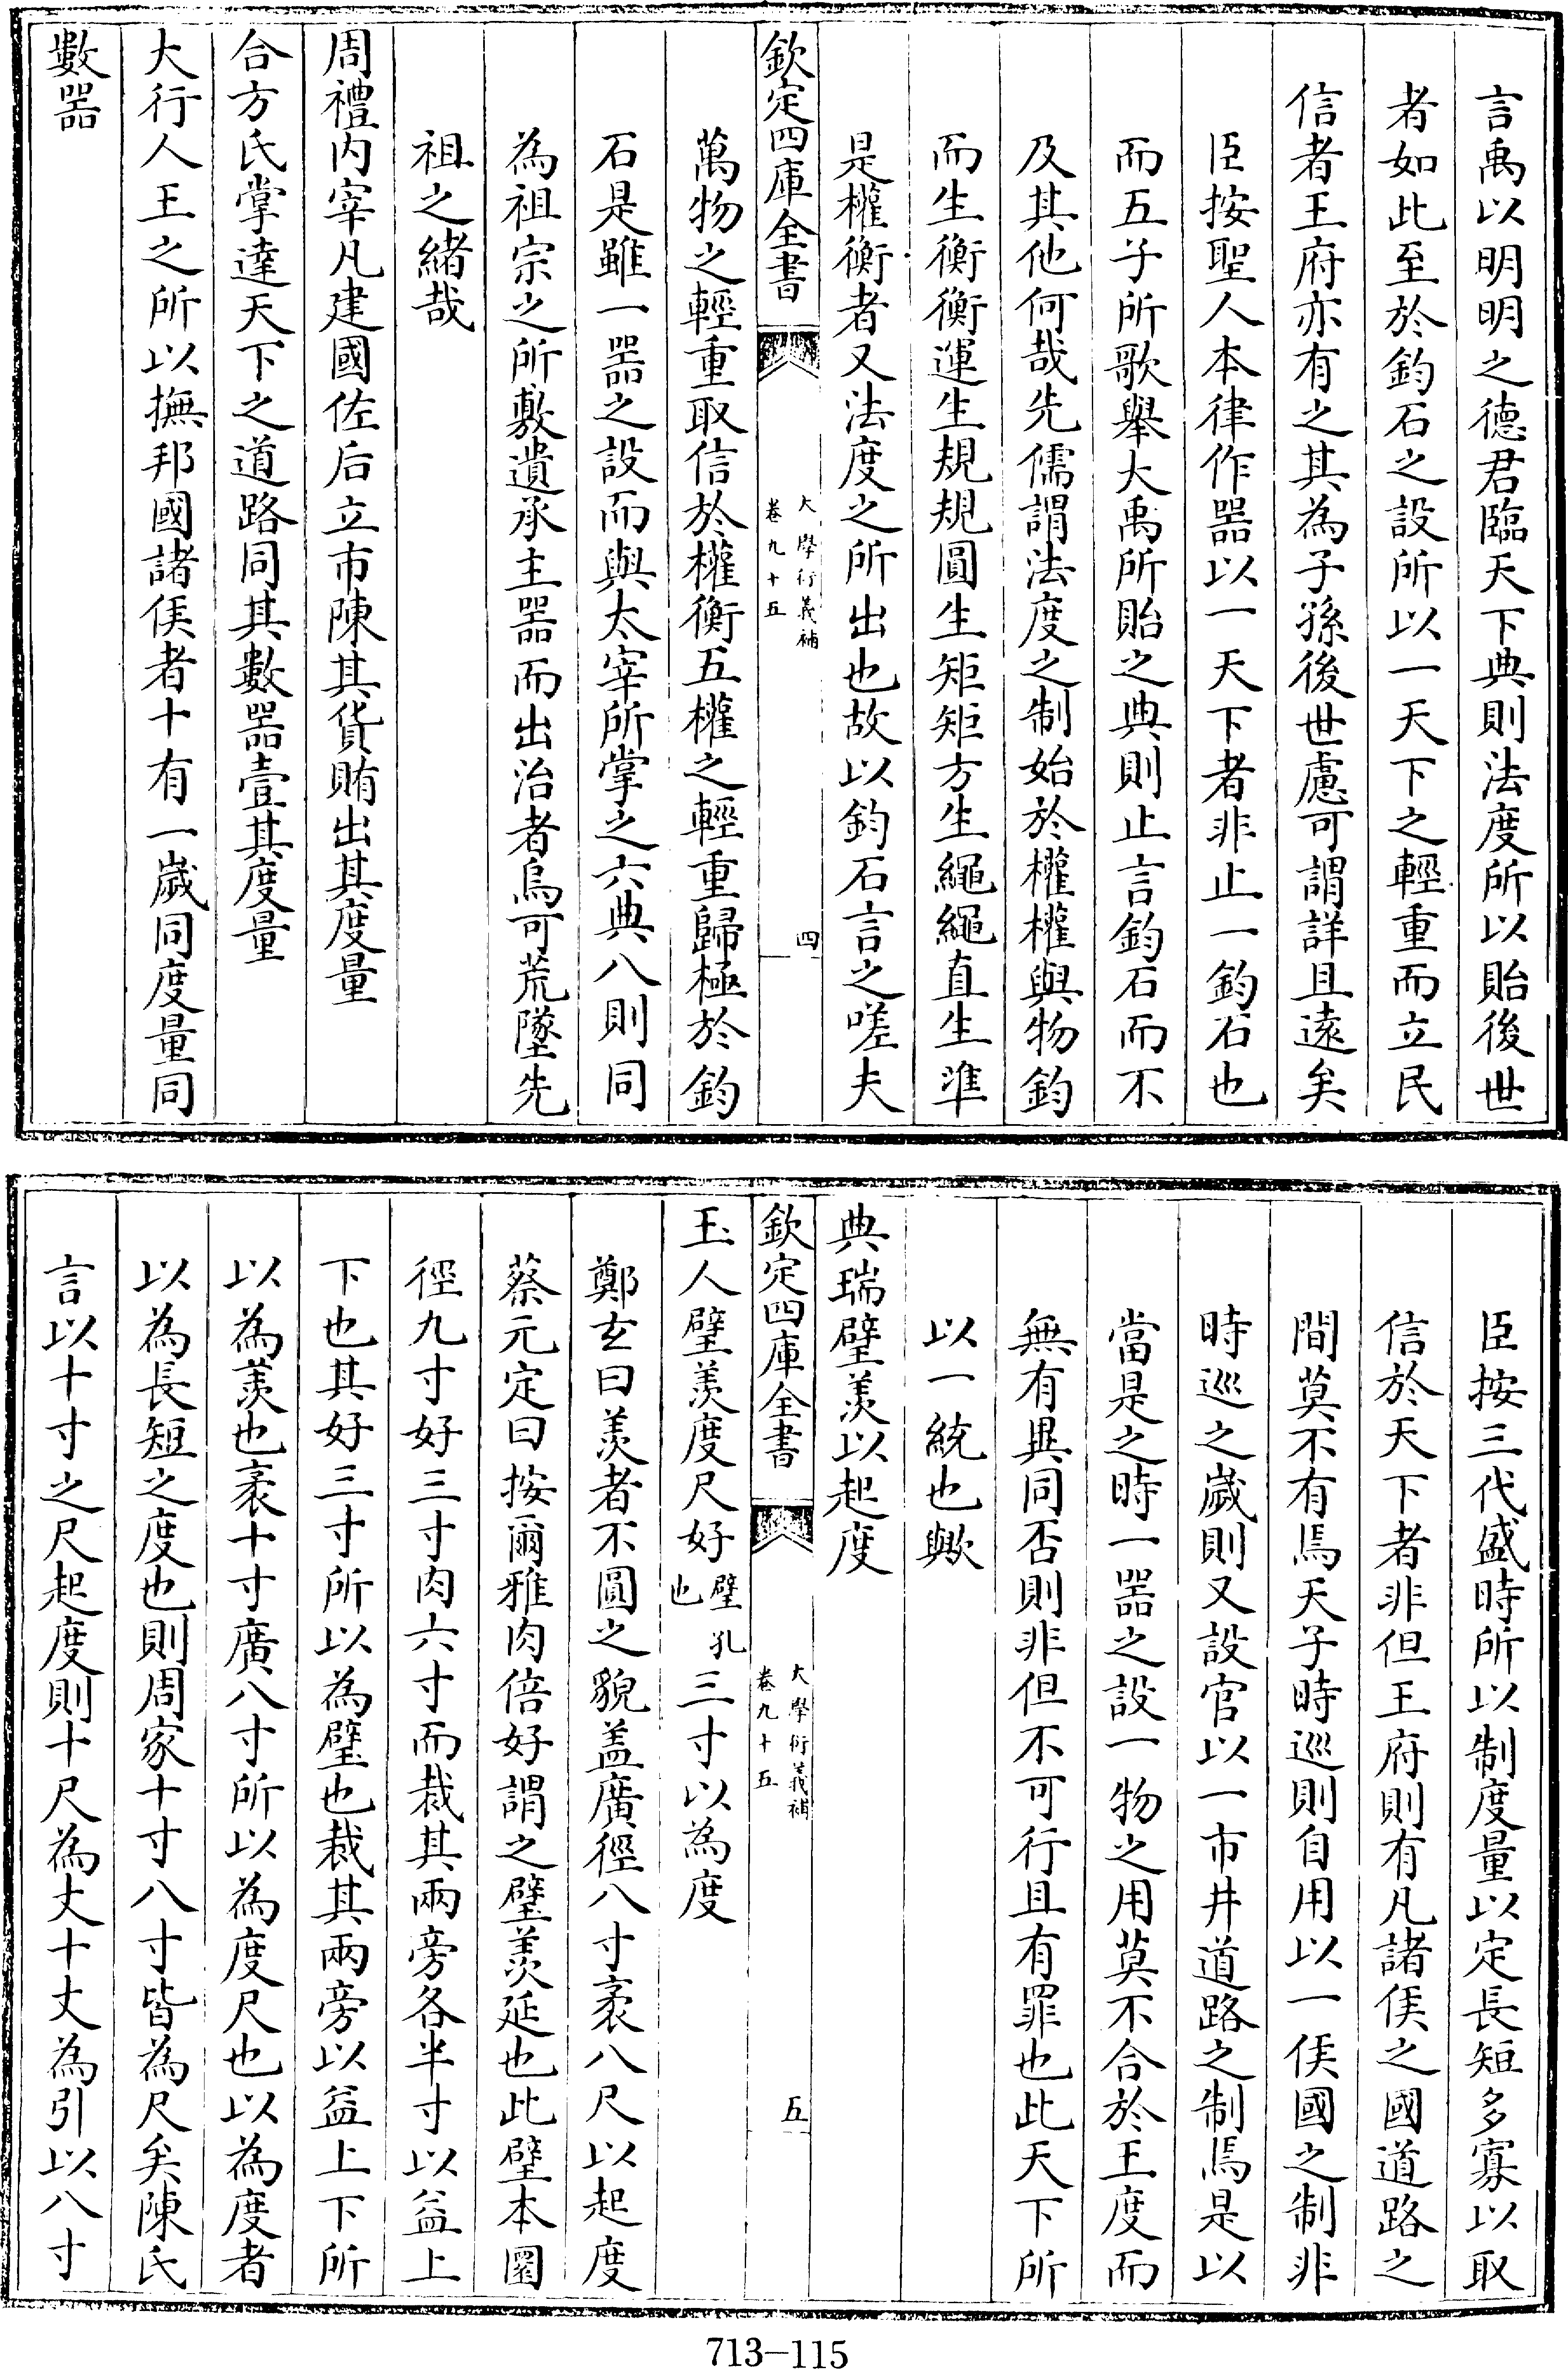 言禹以明明之德君臨天下典則法度所以貽後世
者如此至於鈞石之設所以一天下之輕重而立民
信者王府亦有之其為子孫後世慮可謂詳且遠矣
臣按聖人本律作器以一天下者非止一鈞石也
而五子所歌舉大禹所貽之典則止言鈞石而不
及其他何哉先儒謂法度之制始於權權與物鈞
而生衡衡運生規規圓生矩矩方生繩繩直生準
是權衡者又法度之所出也故以鈞石言之嗟夫
欽定四庫全書
大學衍義補
卷九十五
四
萬物之輕重取信於權衡五權之輕重歸極於鈞
石是雖一器之設而與太宰所掌之六典八則同
為祖宗之所敷遺承主器而出治者烏可荒墜先
祖之緒哉
周禮内宰凡建國佐后立市陳其貨賄出其度量
合方氏掌達天下之道路同其數器壹其度量
大行人王之所以撫邦國諸侯者十有一歲同度量同
數器
臣按三代盛時所以制度量以定長短多寡以取
信於天下者非但王府則有凡諸侯之國道路之
間莫不有焉天子時巡則自用以一侯國之制非
時巡之歲則又設官以一市井道路之制焉是以
當是之時一器之設一物之用莫不合於王度而
無有異同否則非但不可行且有罪也此天下所
以一統也歟
典瑞璧羨以起度
欽定四庫全書
大學衍義補
卷九十五
五
玉人璧羨度尺好璧孔也三寸以為度
鄭玄曰羨者不圓之貌盖廣徑八寸袤八尺以起度
蔡元定曰按爾雅肉倍好謂之璧羨延也此璧本圜
徑九寸好三寸肉六寸而裁其兩旁各半寸以益上
下也其好三寸所以為璧也裁其兩旁以益上下所
以為羨也袤十寸廣八寸所以為度尺也以為度者
以為長短之度也則周家十寸八寸皆為尺矣陳氏
言以十寸之尺起度則十尺為丈十丈為引以八寸
713-115